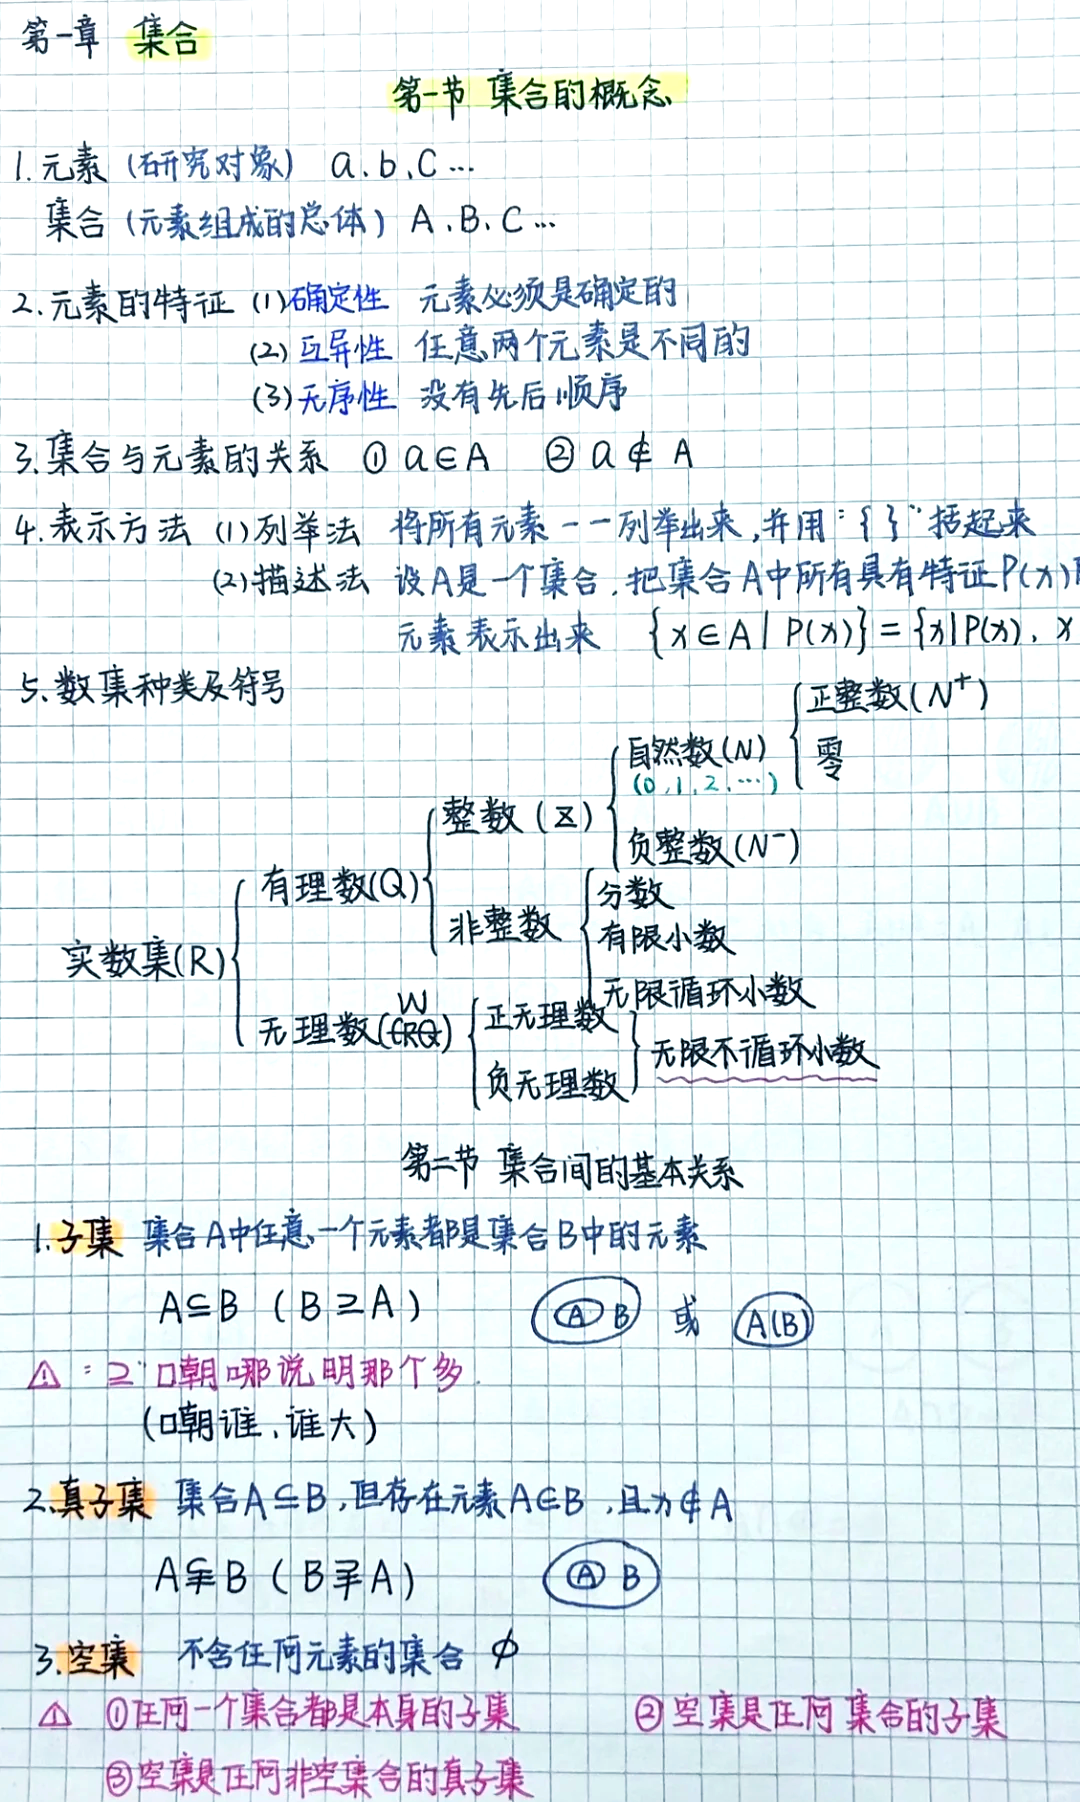 第一章 集合
第一节 集合的概念
1.元素(研究对象) a.b.C…
集合(元素组成的总体) A.B.C…
2.元素的特征 (1)确定性 元素必须是确定的
(2)互异性 任意两个元素是不同的
(3)无序性 没有先后顺序
3.集合与元素的关系 ①a∈A ②a∉A
4.表示方法 (1)列举法 将所有元素一一列举出来,并用“{ }”括起来
(2)描述法 设A是一个集合,把集合A中所有具有特征P(x)
元素表示出来 {x∈A|P(x)}={x|P(x),x
5.数集种类及符号
正整数(N⁺)
自然数(N)
零
(0,1,2,…)
整数(Z)
负整数(N⁻)
有理数(Q)
分数
非整数
有限小数
实数集(R)
无限循环小数
无理数(∁RQ)
正无理数
无限不循环小数
负无理数
第二节 集合间的基本关系
1.子集 集合A中任意一个元素都是集合B中的元素
A⊆B (B⊇A) A B 或 A(B)
⚠ “⊇”口朝哪说明那个多.
(口朝谁,谁大)
2.真子集 集合A⊆B,但存在元素A∈B,且x∉A
A⫋B (B⫌A) A B
3.空集 不含任何元素的集合 ∅
⚠ ①任何一个集合都是本身的子集 ②空集是任何集合的子集
③空集是任何非空集合的真子集